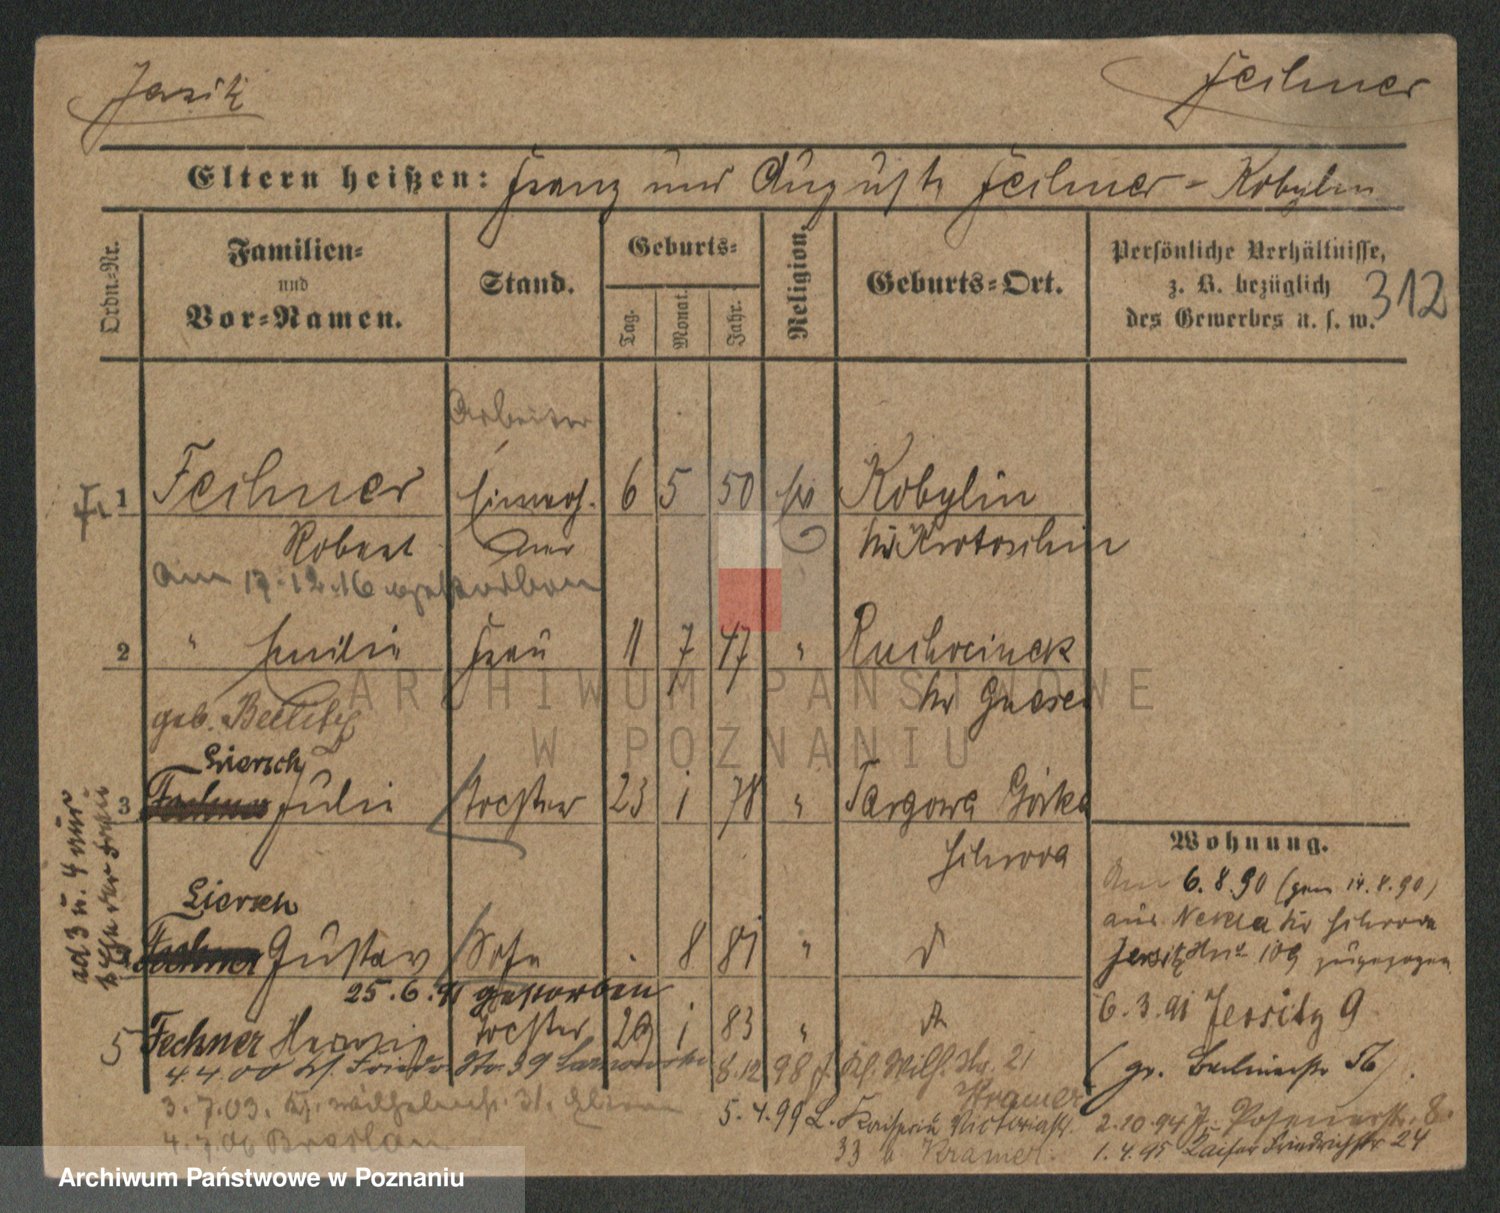 Jersitz
Fechner
Eltern heißen: Franz und Auguste Fechner - Kobylin
Ordn.-Nr.
Familien-
und
Vor-Namen.
Stand.
Geburts-
Tag.
Monat.
Jahr.
Religion.
Geburts-Ort.
Persönliche Verhältnisse,
z. B. bezüglich
des Gewerbes u. s. w.
312
Arbeiter
1 Fechner 6 5 50 Kobylin
Robert Kr Krotoschin
am 17.12.16 gestorben
2 " Emilie Frau 11 7 47 " Ruchocinek
Kr Gnesen
geb.
Liersch
3 Fechner Julie Tochter 23 1 78 " Targowa Górka
Schroda
ad 3 u. 4 nur
der Frau
Liersch
4 Fechner Gustav Sohn 8 81 "
25.6.91 gestorben
5 Fechner Hedwig Tochter 29 1 83 "
Wohnung.
Am 6.8.90 (gem 14.8.90)
aus Nekla Kr Schroda
Jersitz 109 zugezogen
6.3.91 Jersitz 9
(gr. Berlinerstr 56).
4.4.00 Str. 39
8.12.98 Wilh. Str. 21
Kramer
3.7.03. Wilhelmstr. 31.
5.4.99 L. Kaiserin Victoriastr.
33 b Kramer.
2.10.94 Posenerstr. 8.
4.7.06 Breslau
1.4.95 Kaiser Friedrichstr 24
ARCHIWUM PAŃSTWOWE
W POZNANIU
Archiwum Państwowe w Poznaniu